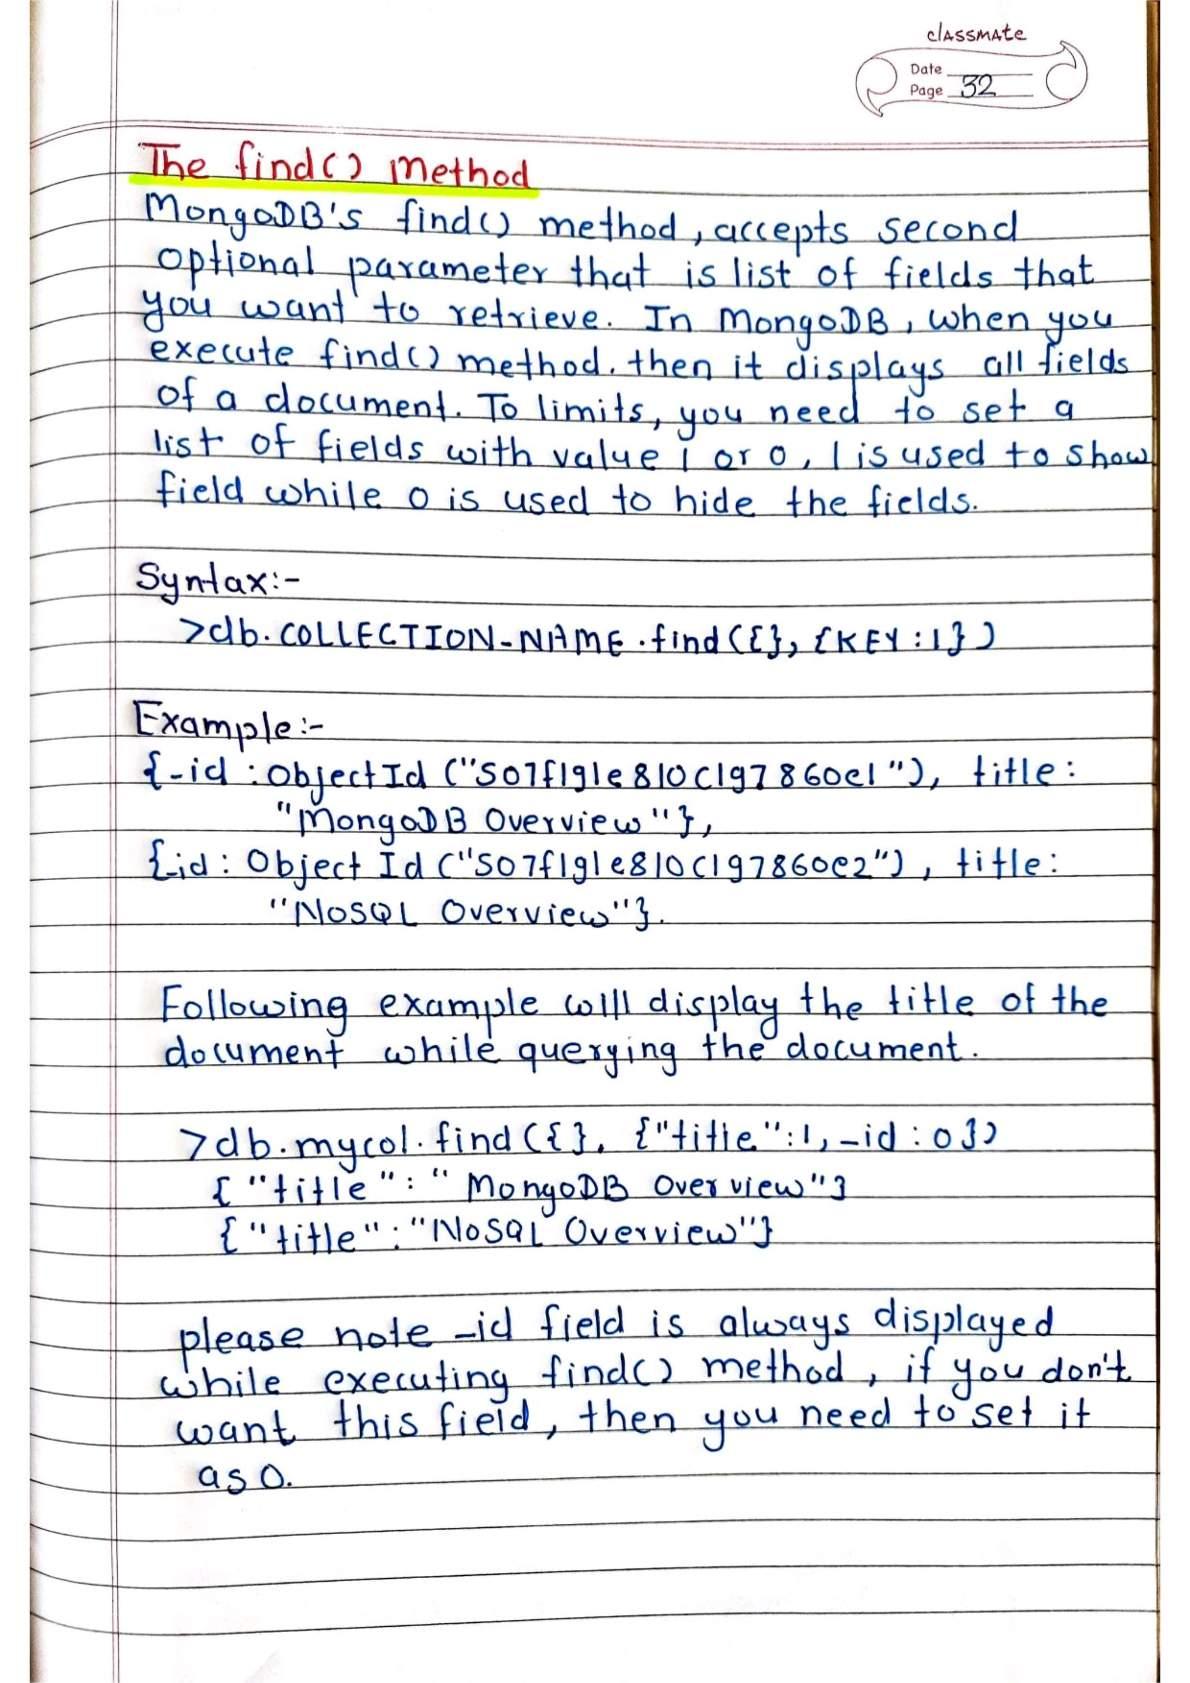 classmate
Date
Page 32
The find() Method
MongoDB's find() method, accepts second
optional parameter that is list of fields that
you want to retrieve. In MongoDB, when you
execute find() method. then it displays all fields
of a document. To limits, you need to set a
list of fields with value 1 or 0, 1 is used to show
field while 0 is used to hide the fields.
Syntax:-
>db.COLLECTION-NAME.find({}, {KEY:1})
Example:-
{-id : ObjectId ("507f191e810c197860e1"), title:
"MongoDB Overview"},
{_id: Object Id ("507f191e810c197860e2"), title:
"NoSQL Overview"}.
Following example will display the title of the
document while querying the document.
>db.mycol.find({}, {"title":1, _id:0})
{"title": "MongoDB Overview"}
{"title": "NoSQL Overview"}
please note _id field is always displayed
while executing find() method, if you don't
want this field, then you need to set it
as 0.